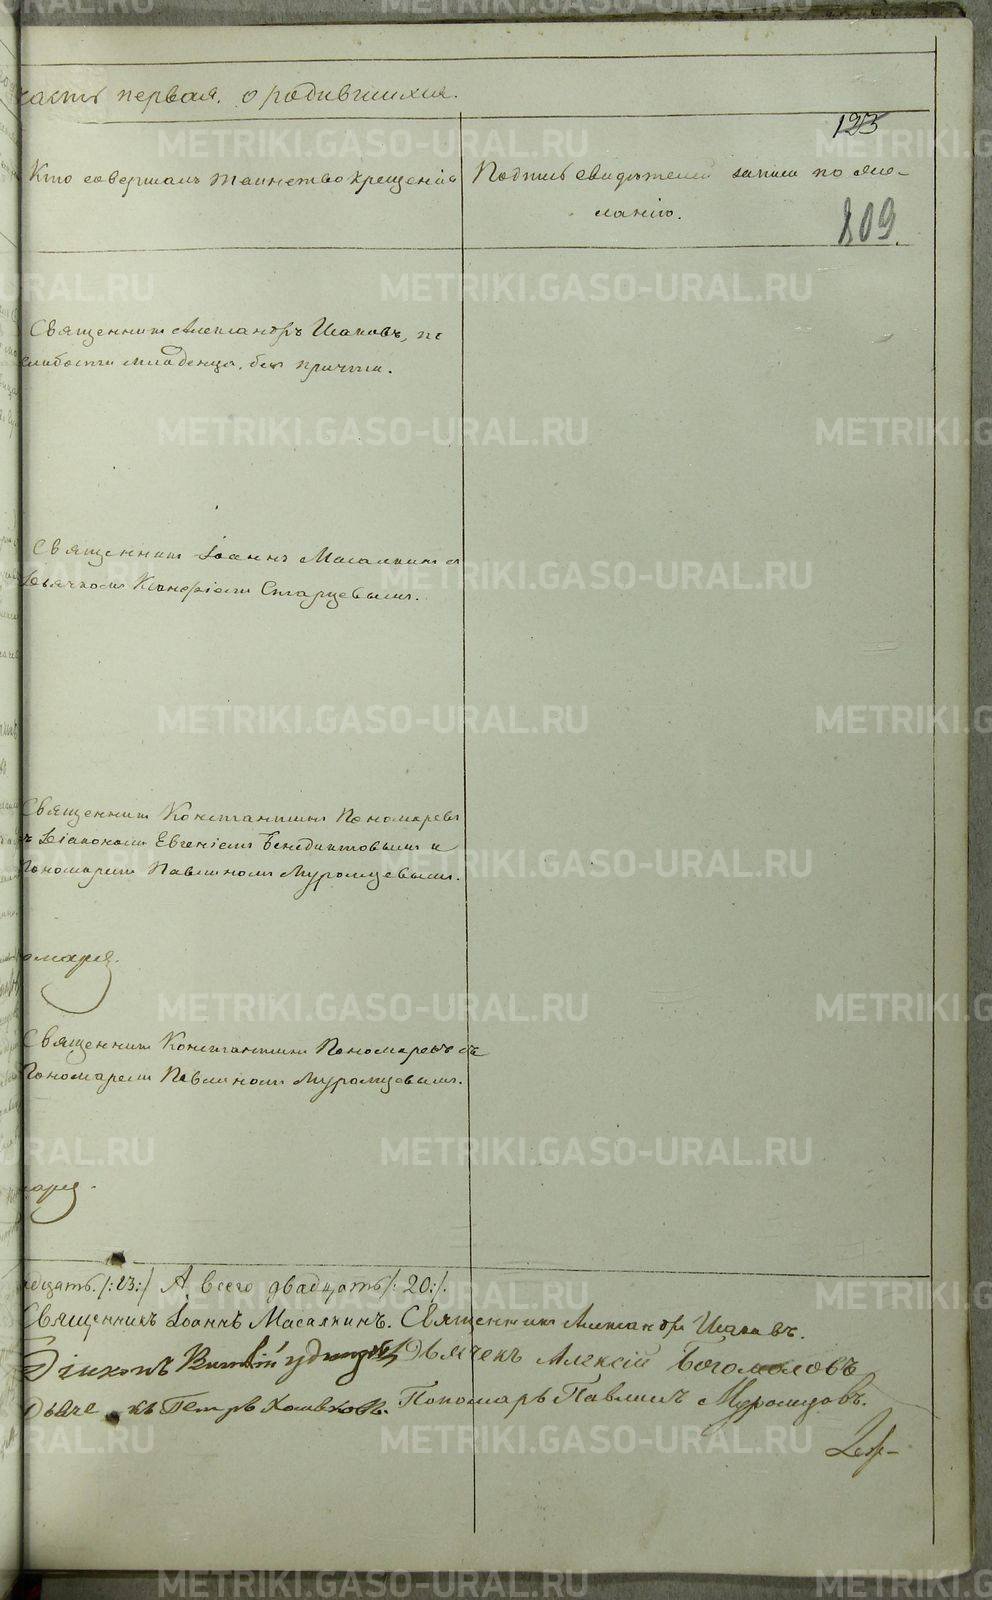 часть первая. о родившихся.
123
Кто совершалъ таинство крещенія
Подпись свидѣтелей записи по же-
ланію.
809.
Священникъ Александръ Шаповъ, по
слабости младенца, безъ причта.
Священникъ Іоаннъ Масалкинъ съ
Дьячкомъ Старцевымъ.
Священникъ Константинъ Пономаревъ
съ Діакономъ Евгеніемъ Бенедиктовымъ и
Пономаремъ Павлиномъ Муромцевымъ.
омаря.
Священникъ Константинъ Пономаревъ съ
Пономаремъ Павлиномъ Муромцевымъ.
маря.
адцать /:13:/ А всего двадцать /:20:/.
Священникъ Іоаннъ Масалкинъ. Священникъ Александръ Шаповъ.
Діаконъ Дьячекъ Алексій Богомоловъ
Дьячекъ Петръ Пономарь Павлинъ Муромцовъ.
METRIKI.GASO-URAL.RU